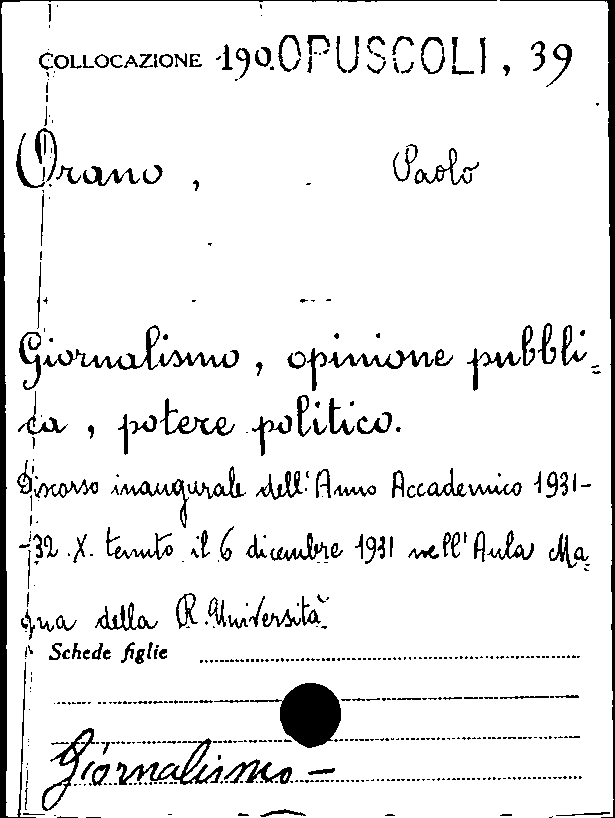 COLLOCAZIONE 190.OPUSCOLI, 39
Orano, Paolo
Giornalismo, opinione pubbli=
ca, potere politico.
Discorso inaugurale dell'Anno Accademico 1931-
-32.X. tenuto il 6 dicembre 1931 nell'Aula Ma=
gna della R. Università.
Schede figlie
Giornalismo -